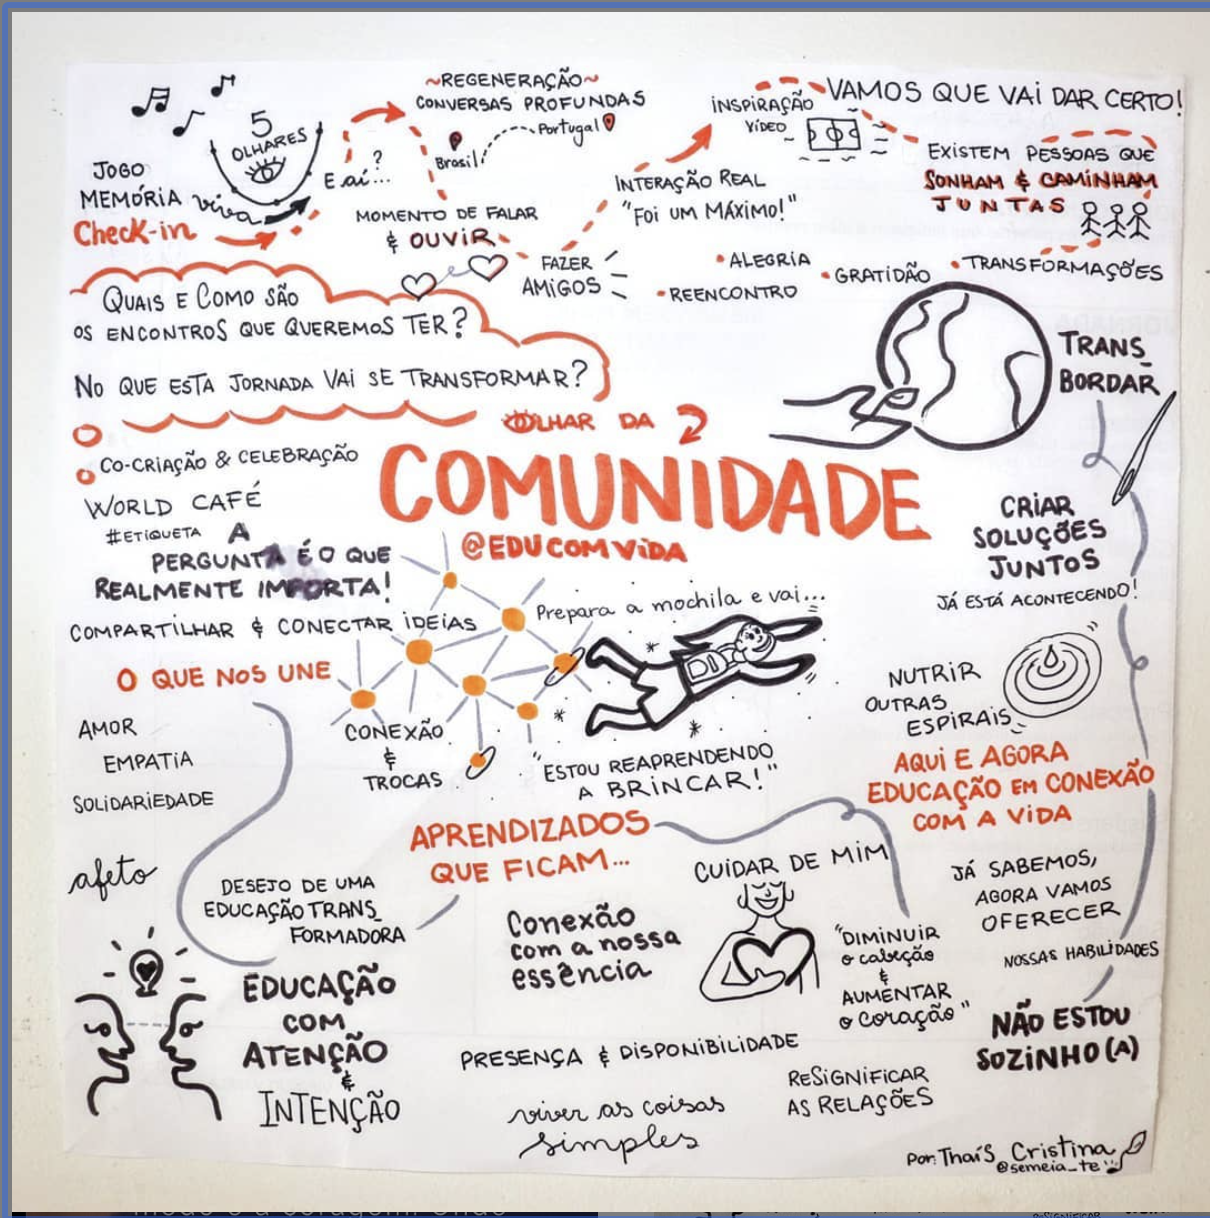 5
OLHARES
JOGO
MEMÓRIA viva
Check-in
E aí...?
~REGENERAÇÃO~
CONVERSAS PROFUNDAS
Brasil
Portugal
MOMENTO DE FALAR
& OUVIR
FAZER
AMIGOS
INTERAÇÃO REAL
"FOI UM MÁXIMO!"
INSPIRAÇÃO
VÍDEO
VAMOS QUE VAI DAR CERTO!
EXISTEM PESSOAS QUE
SONHAM & CAMINHAM
JUNTAS
• ALEGRIA
• GRATIDÃO
• TRANSFORMAÇÕES
• REENCONTRO
QUAIS E COMO SÃO
OS ENCONTROS QUE QUEREMOS TER?
NO QUE ESTA JORNADA VAI SE TRANSFORMAR?
TRANS_
BORDAR
OLHAR DA
COMUNIDADE
@EDUCOMVIDA
CO-CRIAÇÃO & CELEBRAÇÃO
WORLD CAFÉ
#ETIQUETA
A
PERGUNTA É O QUE
REALMENTE IMPORTA!
COMPARTILHAR & CONECTAR IDEIAS
O QUE NOS UNE
AMOR
EMPATIA
SOLIDARIEDADE
afeto
CONEXÃO
&
TROCAS
Prepara a mochila e vai...
"ESTOU REAPRENDENDO
A BRINCAR!"
CRIAR
SOLUÇÕES
JUNTOS
JÁ ESTÁ ACONTECENDO!
NUTRIR
OUTRAS
ESPIRAIS
AQUI E AGORA
EDUCAÇÃO EM CONEXÃO
COM A VIDA
JÁ SABEMOS,
AGORA VAMOS
OFERECER
NOSSAS HABILIDADES
NÃO ESTOU
SOZINHO(A)
DESEJO DE UMA
EDUCAÇÃO TRANS_
FORMADORA
EDUCAÇÃO
COM
ATENÇÃO
&
INTENÇÃO
APRENDIZADOS
QUE FICAM...
Conexão
com a nossa
essência
CUIDAR DE MIM
"DIMINUIR
o cabeção
&
AUMENTAR
o coração"
PRESENÇA & DISPONIBILIDADE
viver as coisas
simples
RESIGNIFICAR
AS RELAÇÕES
por: Thaís Cristina
@semeia_te